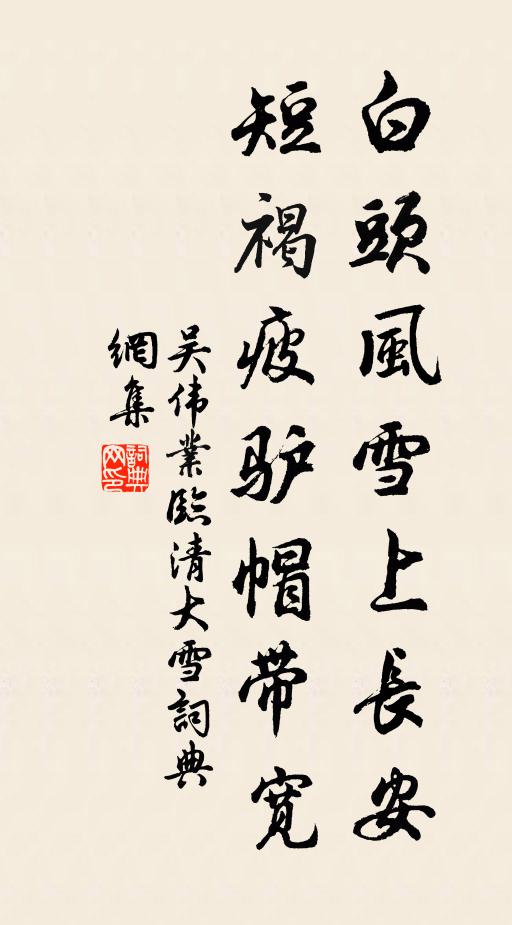 白頭風雪上長安
短褐疲驴帽带寬
吴伟業臨清大雪詞典
網集
詞典
网印